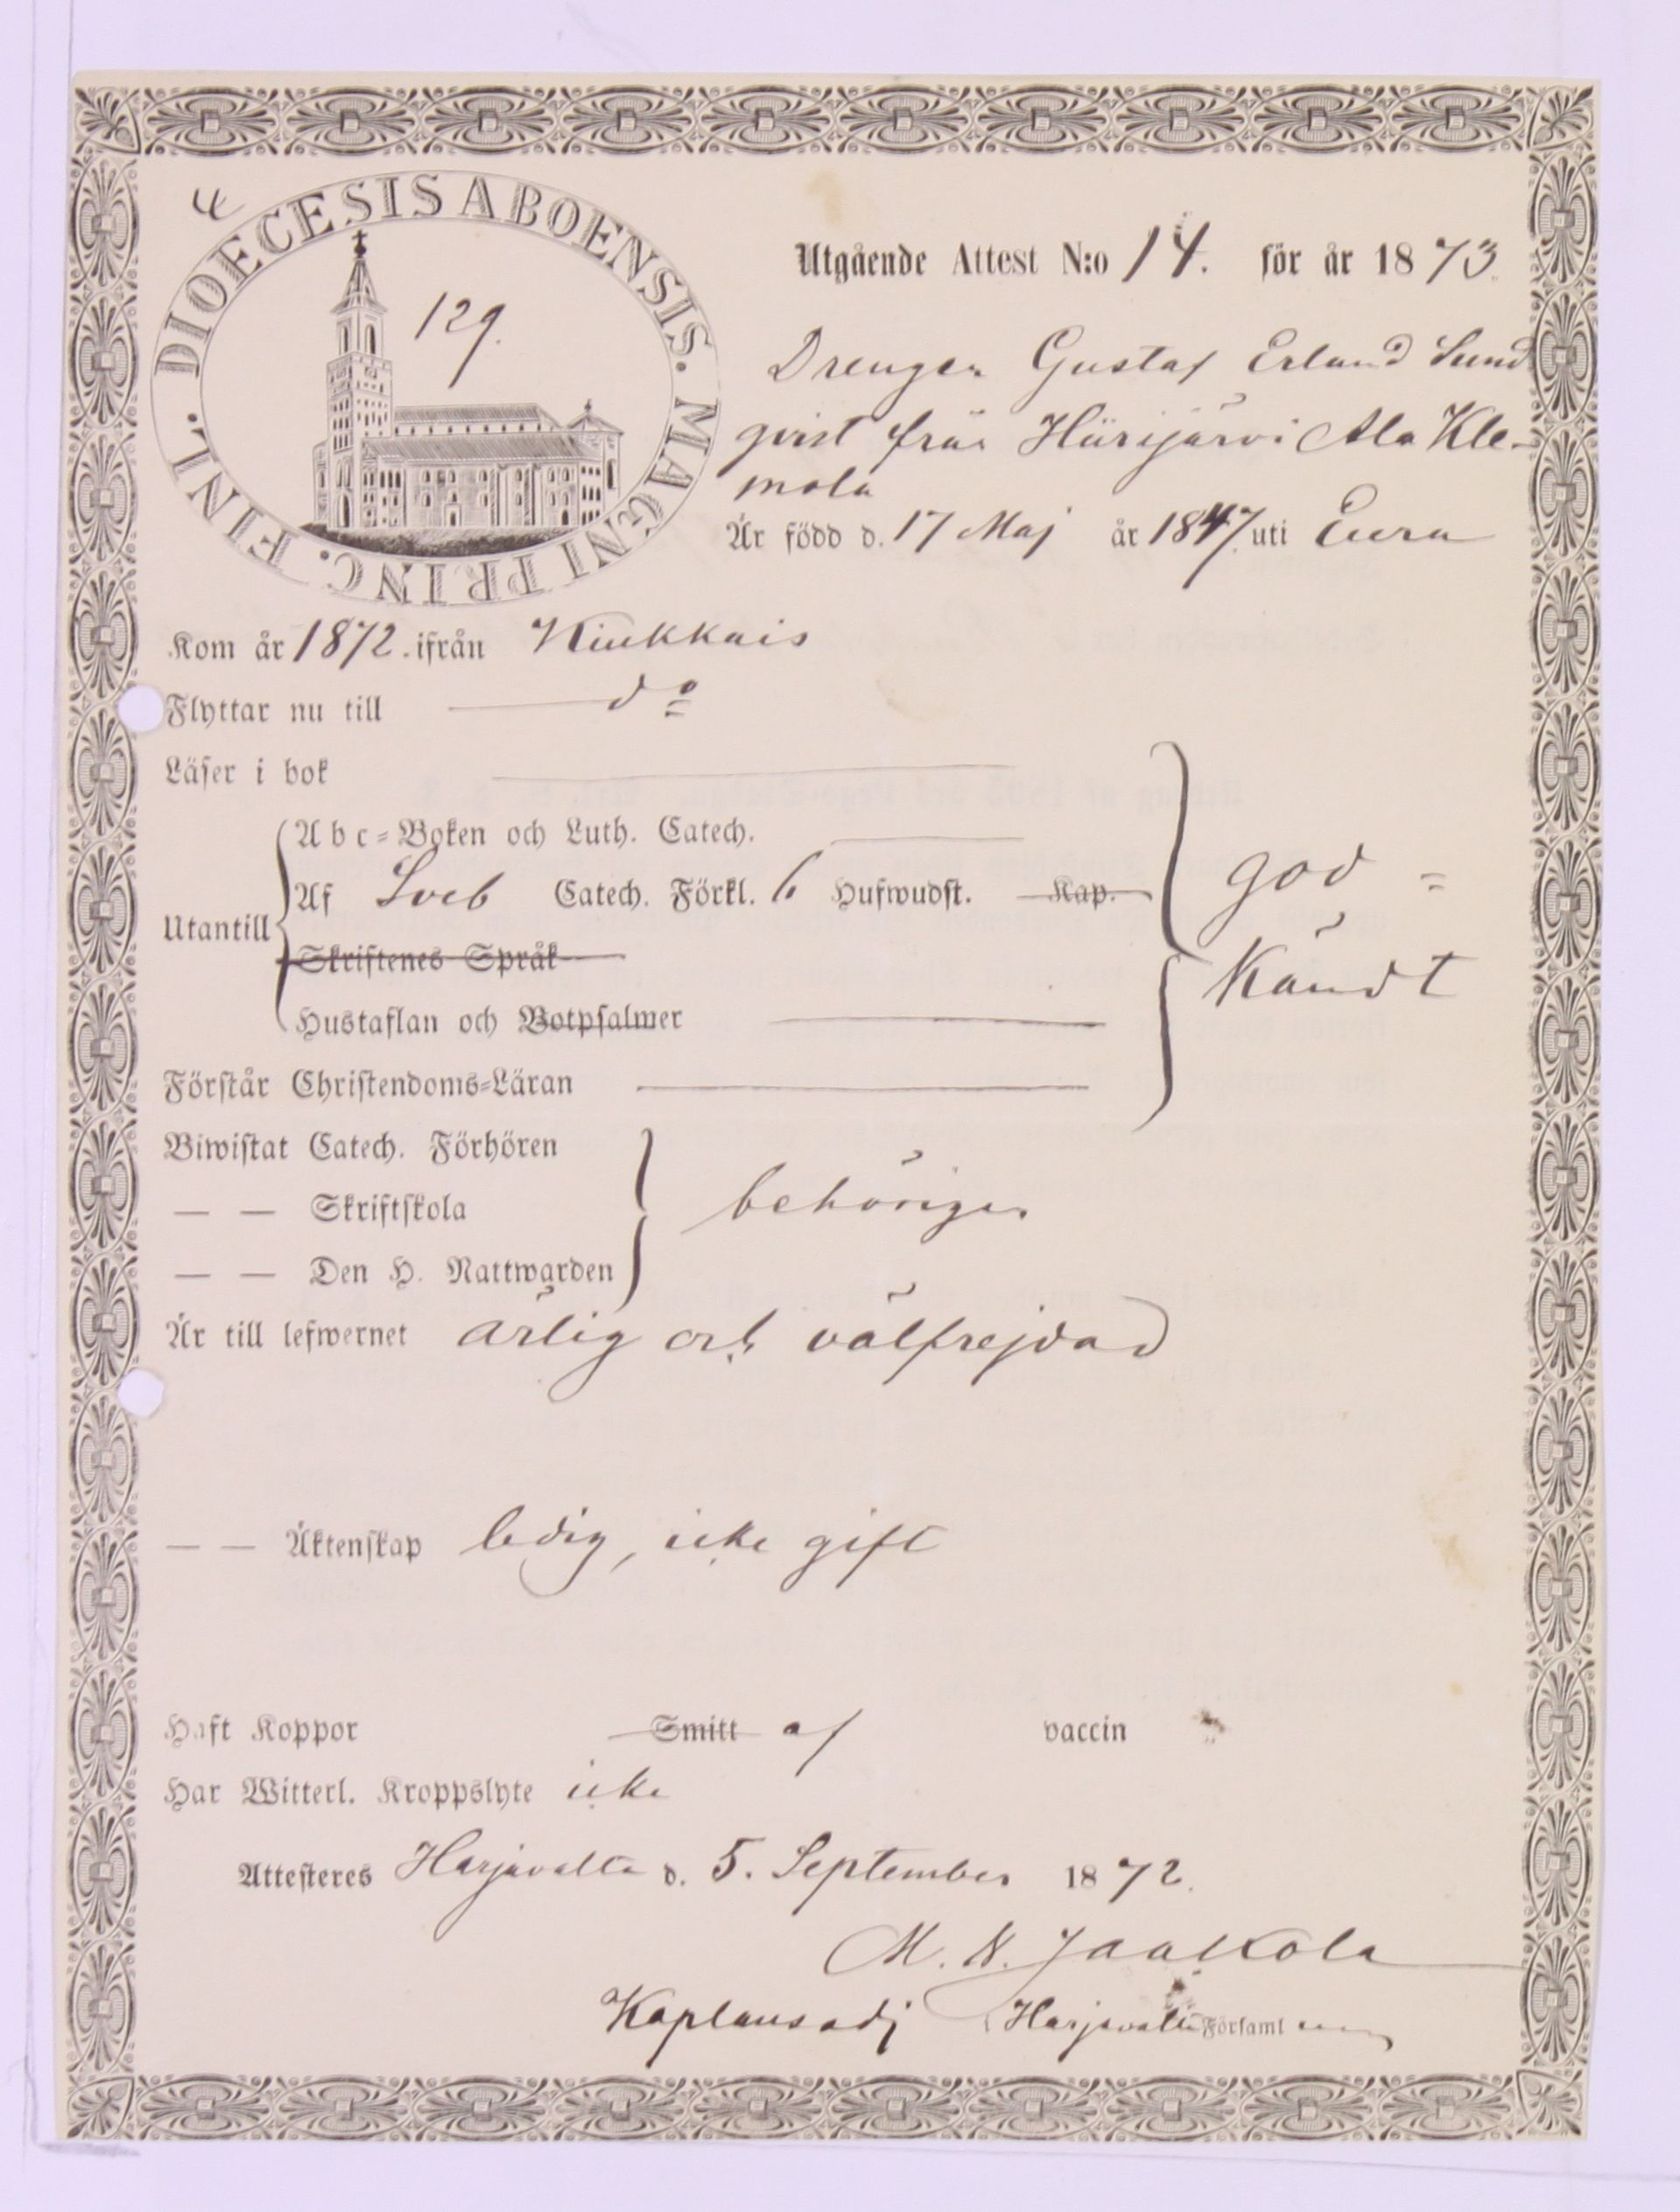 DIOECESIS ABOENSIS. MAGNI PRINC. FINL.
129.
Utgående Attest N:o 14. för år 1873.
Drengen Gustaf Erland Sund
qvist från Hiirijärvi Ala Kle-
mola
Är född d. 17 Maj år 1847. uti Eura
Kom år 1872. ifrån Kiukkais
Flyttar nu till do
Läser i bok
Abc-Boken och Luth. Catech.
Af Sveb Catech. Förkl. 6 Hufwudst. Kap.
god=
Utantill
Skriftenes Språk
Kändt
Hustaflan och Botpsalmer
Förstår Christendoms-Läran
Biwistat Catech. Förhören
— — Skriftskola
behörigen
— — Den H. Nattwarden
Är till lefwernet ärlig och välfrejdad
— — Äktenskap ledig, icke gift
Haft Koppor Smitt af vaccin
Har Witterl. Kroppslyte icke
Attesteres Harjavalta d. 5. September 1872.
M. N. Jaakola
Kaplansadj i Harjavalta Församl